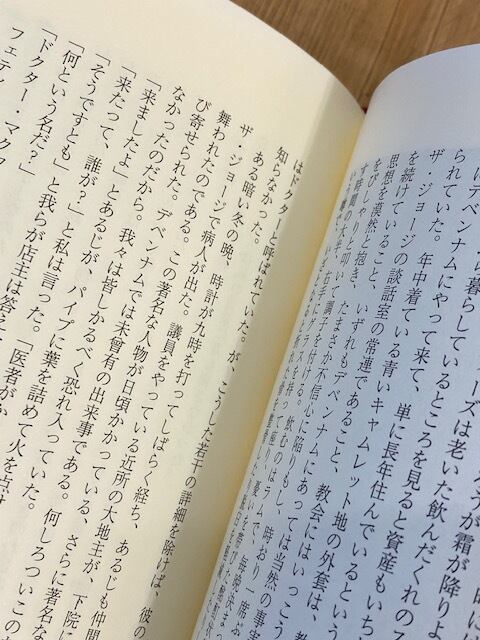 ろうが霜が降りよ
ーズは老いた飲んだくれの
暮らしているところを見ると資産もいち
デベンナムにやって来て、単に長年住んでいるという
られていた。年中着ている青いキャムレット地の外套は、教
ザ・ジョージの談話室の常連であること、教会にはいっこう
を続けていること、いずれもデベンナムにあっては当然の事実
思想を漠然と抱き、たまさか不信心に陥りもし、時おり一席ぶ
をぴしゃりと叩いて調子を付ける。飲むのはラムで、毎晩決ま
す時間の大半 右手にグラスを持ち
はドクターと呼ばれていた。が、こうした若干の詳細を除けば、彼の
知らなかった。
ある暗い冬の晩、時計が九時を打ってしばらく経ち、あるじも仲間
ザ・ジョージで病人が出た。議員をやっている近所の大地主が、下院
舞われたのである。この著名な人物が日頃かかっている、さらに著名な
び寄せられた。デベンナムでは未曾有の出来事である。何しろついこの
なかったのだから。我々は皆しかるべく恐れ入っていた。
「来ましたよ」とあるじが、パイプに葉を詰めて火を点け
「来たって、誰が？」と私は言った。「医者がか
「そうですとも」と我らが店主は答え
「何という名だ？」
「ドクター・マクフ
フェティ